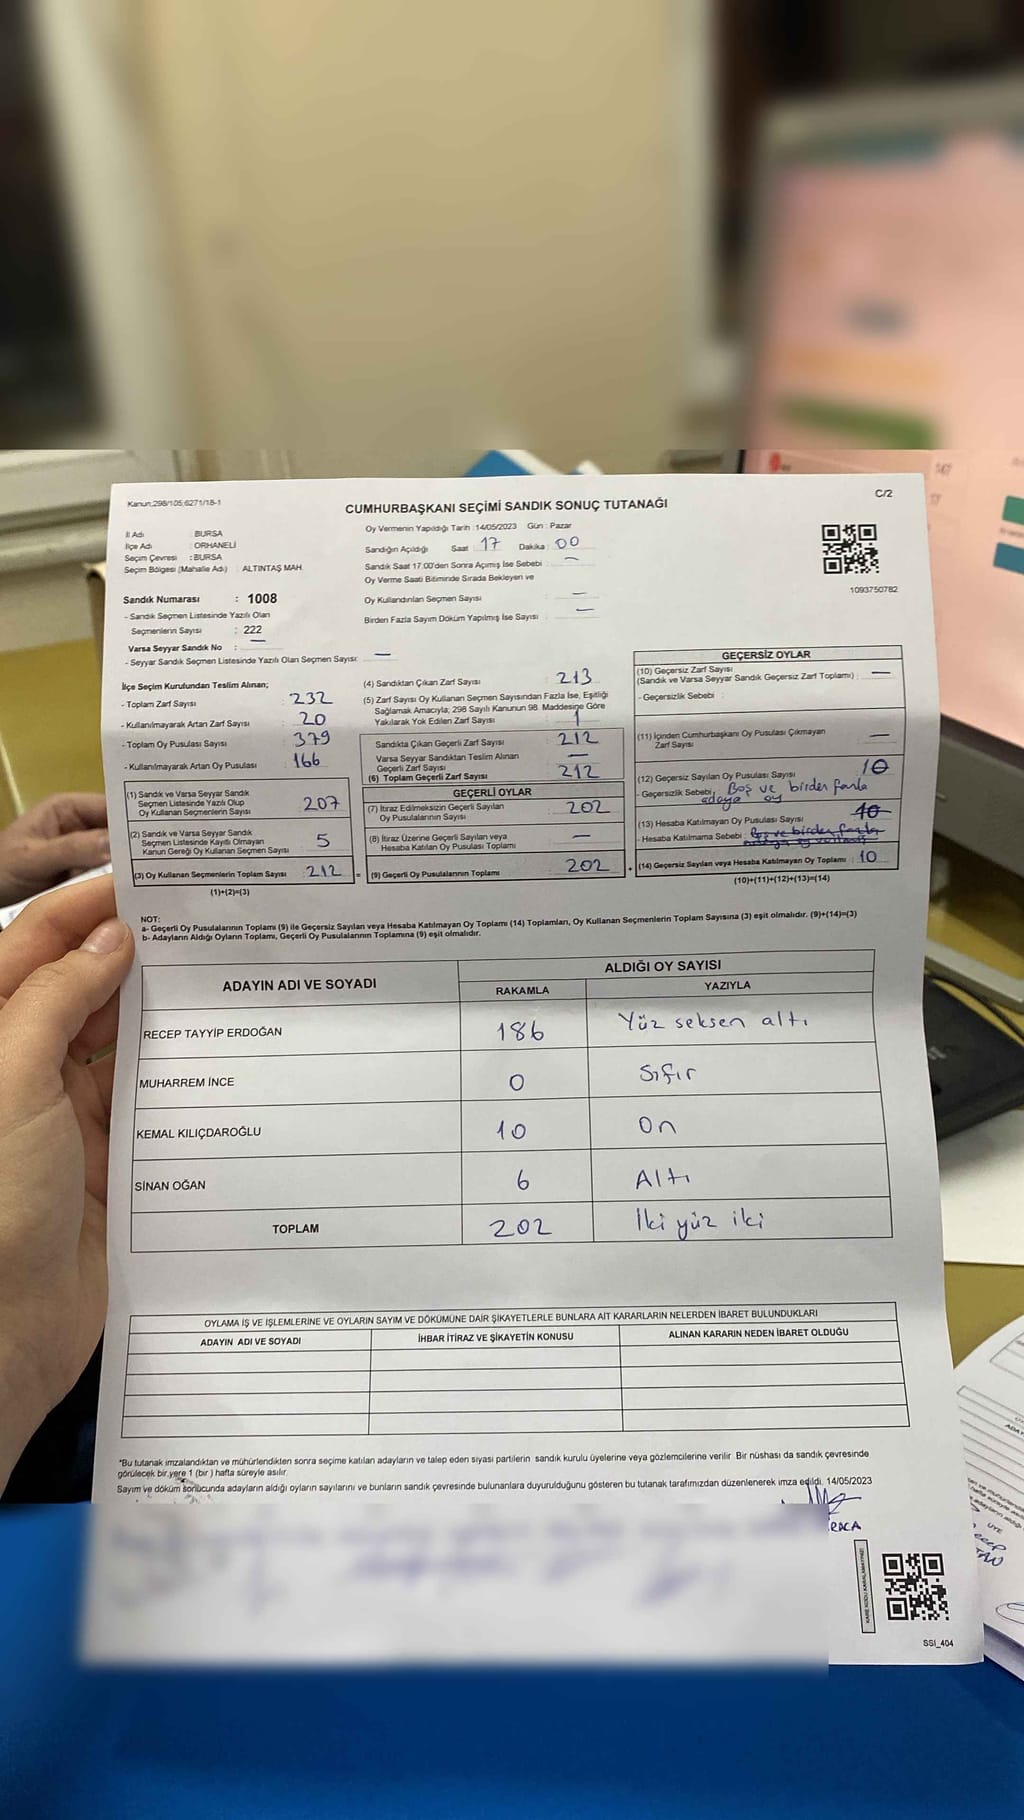 Kanun;298/105;6271/18-1
C/2
CUMHURBAŞKANI SEÇİMİ SANDIK SONUÇ TUTANAĞI
İl Adı : BURSA
İlçe Adı : ORHANELİ
Seçim Çevresi : BURSA
Seçim Bölgesi (Mahalle Adı) : ALTINTAŞ MAH.
Oy Vermenin Yapıldığı Tarih : 14/05/2023 Gün : Pazar
Sandığın Açıldığı Saat 17 Dakika : 00
Sandık Saat 17.00'den Sonra Açımış İse Sebebi : —
Oy Verme Saati Bitiminde Sırada Bekleyen ve
Oy Kullandırılan Seçmen Sayısı : —
Birden Fazla Sayım Döküm Yapılmış İse Sayısı : —
1093750782
Sandık Numarası : 1008
- Sandık Seçmen Listesinde Yazılı Olan
Seçmenlerin Sayısı : 222
Varsa Seyyar Sandık No : —
- Seyyar Sandık Seçmen Listesinde Yazılı Olan Seçmen Sayısı: —
İlçe Seçim Kurulundan Teslim Alınan;
- Toplam Zarf Sayısı : 232
- Kullanılmayarak Artan Zarf Sayısı : 20
- Toplam Oy Pusulası Sayısı : 379
- Kullanılmayarak Artan Oy Pusulası : 166
(1) Sandık ve Varsa Seyyar Sandık
Seçmen Listesinde Yazılı Olup
Oy Kullanan Seçmenlerin Sayısı : 207
(2) Sandık ve Varsa Seyyar Sandık
Seçmen Listesinde Kayıtlı Olmayan
Kanun Gereği Oy Kullanan Seçmen Sayısı : 5
(3) Oy Kullanan Seçmenlerin Toplam Sayısı : 212
(1)+(2)=(3)
(4) Sandıktan Çıkan Zarf Sayısı : 213
(5) Zarf Sayısı Oy Kullanan Seçmen Sayısından Fazla İse, Eşitliği
Sağlamak Amacıyla; 298 Sayılı Kanunun 98. Maddesine Göre
Yakılarak Yok Edilen Zarf Sayısı : 1
Sandıkta Çıkan Geçerli Zarf Sayısı : 212
Varsa Seyyar Sandıktan Teslim Alınan
Geçerli Zarf Sayısı : —
(6) Toplam Geçerli Zarf Sayısı : 212
GEÇERLİ OYLAR
(7) İtiraz Edilmeksizin Geçerli Sayılan
Oy Pusulalarının Sayısı : 202
(8) İtiraz Üzerine Geçerli Sayılan veya
Hesaba Katılan Oy Pusulası Toplamı : —
= (9) Geçerli Oy Pusulalarının Toplamı : 202
GEÇERSİZ OYLAR
(10) Geçersiz Zarf Sayısı
(Sandık ve Varsa Seyyar Sandık Geçersiz Zarf Toplamı) : —
- Geçersizlik Sebebi :
(11) İçinden Cumhurbaşkanı Oy Pusulası Çıkmayan
Zarf Sayısı : —
(12) Geçersiz Sayılan Oy Pusulası Sayısı : 10
- Geçersizlik Sebebi : Boş ve birden fazla
adaya oy
(13) Hesaba Katılmayan Oy Pusulası Sayısı : 10
- Hesaba Katılmama Sebebi : Boş ve birden fazla
+ (14) Geçersiz Sayılan veya Hesaba Katılmayan Oy Toplamı : 10
(10)+(11)+(12)+(13)=(14)
NOT:
a- Geçerli Oy Pusulalarının Toplamı (9) ile Geçersiz Sayılan veya Hesaba Katılmayan Oy Toplamı (14) Toplamları, Oy Kullanan Seçmenlerin Toplam Sayısına (3) eşit olmalıdır. (9)+(14)=(3)
b- Adayların Aldığı Oyların Toplamı, Geçerli Oy Pusulalarının Toplamına (9) eşit olmalıdır.
ADAYIN ADI VE SOYADI
ALDIĞI OY SAYISI
RAKAMLA YAZIYLA
RECEP TAYYİP ERDOĞAN 186 Yüz seksen altı
MUHARREM İNCE 0 Sıfır
KEMAL KILIÇDAROĞLU 10 On
SİNAN OĞAN 6 Altı
TOPLAM 202 İki yüz iki
OYLAMA İŞ VE İŞLEMLERİNE VE OYLARIN SAYIM VE DÖKÜMÜNE DAİR ŞİKAYETLERLE BUNLARA AİT KARARLARIN NELERDEN İBARET BULUNDUKLARI
ADAYIN ADI VE SOYADI İHBAR İTİRAZ VE ŞİKAYETİN KONUSU ALINAN KARARIN NEDEN İBARET OLDUĞU
*Bu tutanak imzalandıktan ve mühürlendikten sonra seçime katılan adayların ve talep eden siyasi partilerin sandık kurulu üyelerine veya gözlemcilerine verilir. Bir nüshası da sandık çevresinde
görülecek bir yere 1 (bir ) hafta süreyle asılır.
Sayım ve döküm sonucunda adayların aldığı oyların sayılarını ve bunların sandık çevresinde bulunanlara duyurulduğunu gösteren bu tutanak tarafımızdan düzenlenerek imza edildi. 14/05/2023
KARE KODU KARALAMAYINIZ!
SSİ_404
ÜYE